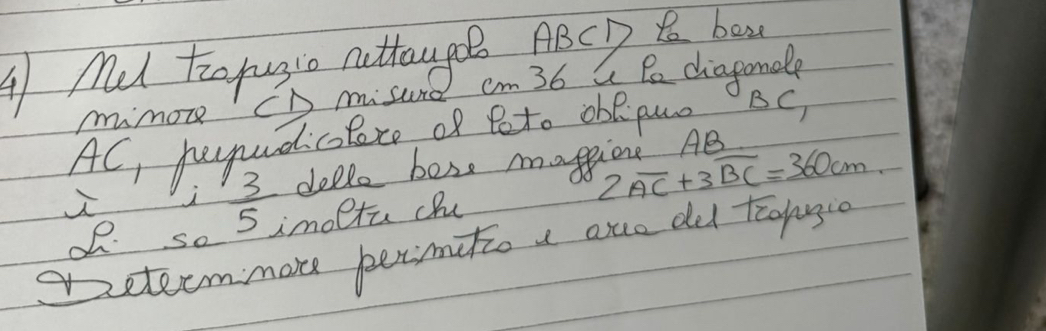 4) Nel trapezio rettangolo ABCD la base
minore CD misura cm 36 e la diagonale
AC, perpendicolare al lato obliquo BC,
è i 3/5 della base maggiore AB.
Si sa inoltre che 2AC + 3BC = 360cm.
Determinare perimetro e area del trapezio